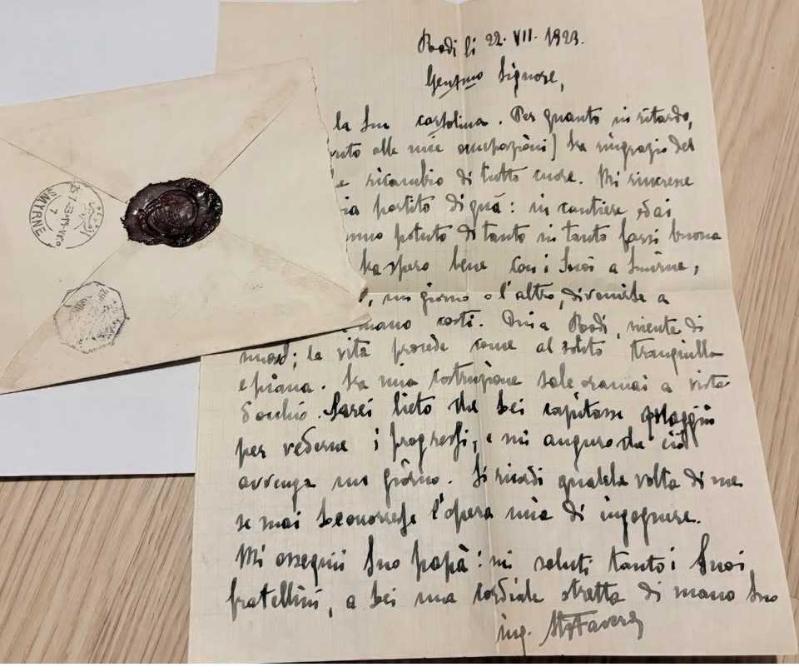 Rodi li 22. VII. 1923.
Gent.mo Signore,
la Sua cartolina. Per quanto in ritardo,
alle mie occupazioni) La ringrazio del
e ricambio di tutto cuore. Mi rincresce
sia partito di quà: in cantiere, Lei
potuto di tanto in tanto farsi buona
La spero bene con i Suoi a Smirne,
un giorno o l'altro, di venirle a
mano costì. Qui a Rodi, niente di
la vita procede come al solito tranquilla
e piana. La mia costruzione sale oramai a vista
d'occhio. Sarei lieto che Lei capitasse
per vederne i progressi, e mi auguro che ciò
avvenga un giorno. Si ricordi qualche volta di me
se mai Le occorresse l'opera mia di ingegnere.
Mi ossequi Suo papà: mi saluti tanto i Suoi
fratellini, a Lei una cordiale stretta di mano Suo
ing.
SMYRNE